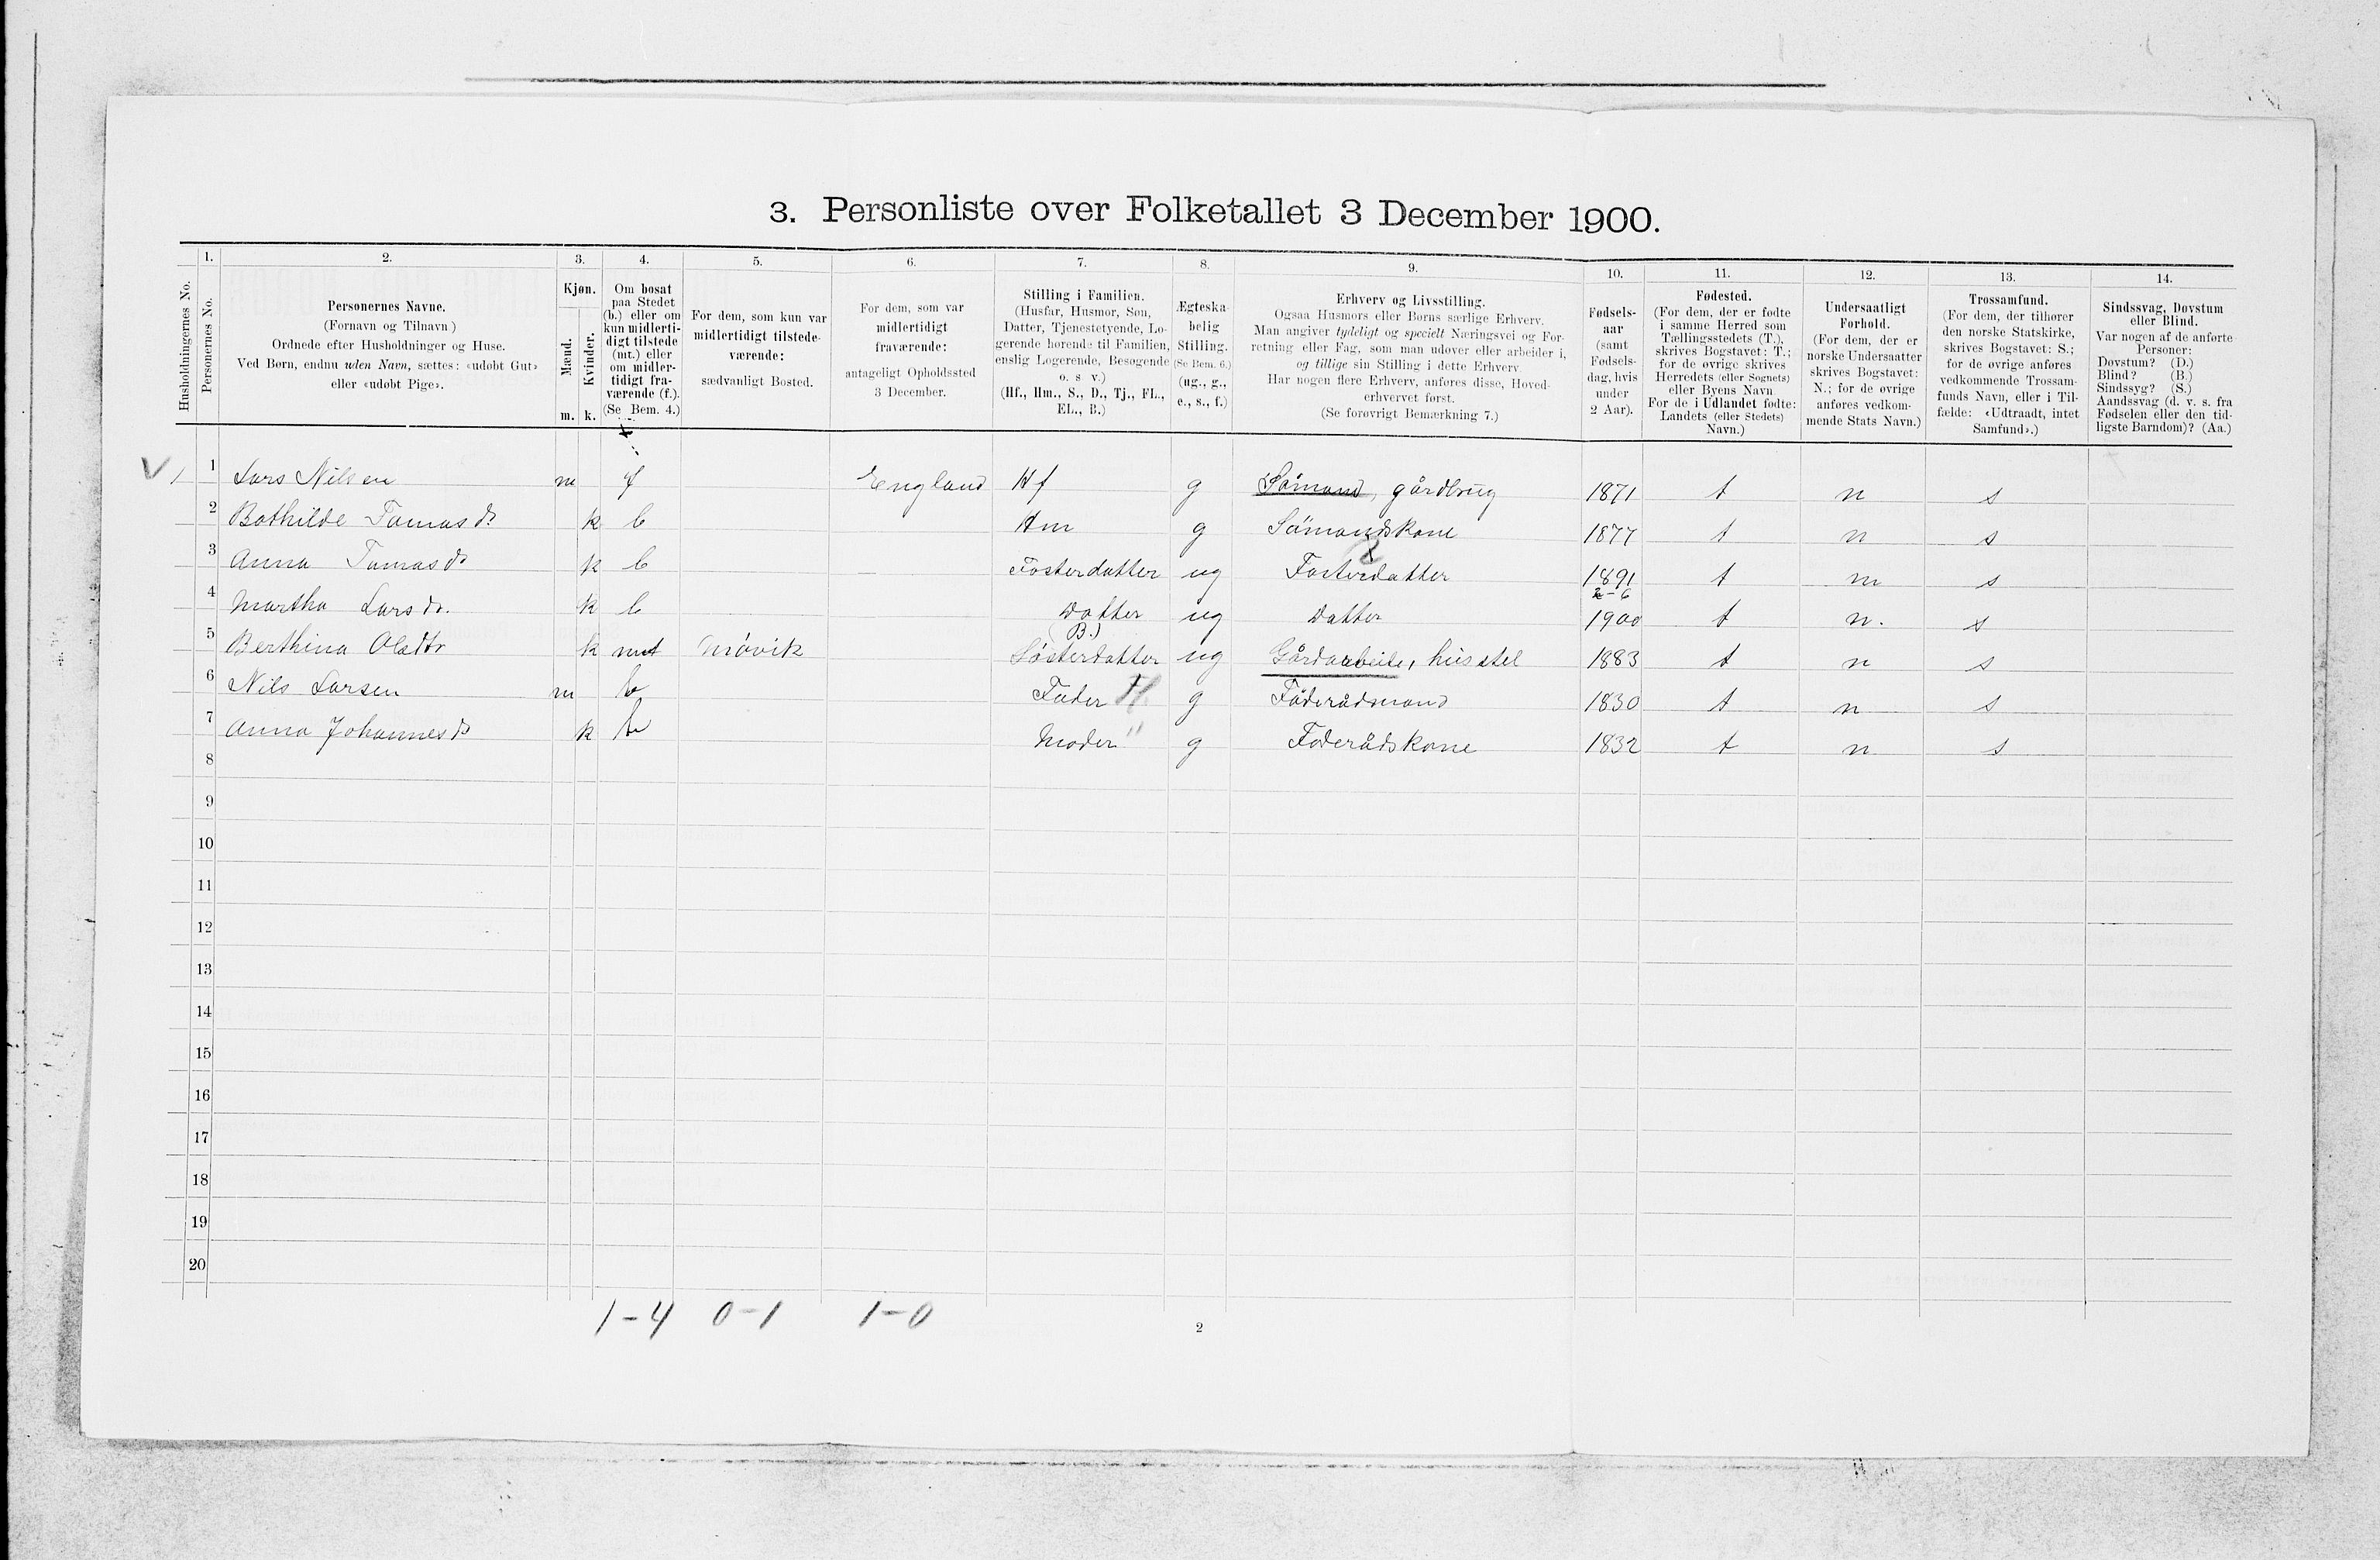 3. Personliste over Folketallet 3 December 1900.
Husholdningernes No.
1.
Personernes No.
2.
Personernes Navne.
(Fornavn og Tilnavn)
Ordnede efter Husholdninger og Huse.
Ved Børn, endnu uden Navn, sættes: «udøbt Gut»
eller «udøbt Pige».
3.
Kjøn.
Mænd.
Kvinder.
m. k.
4.
Om bosat
paa Stedet
(b.) eller om
kun midlerti-
digt tilstede
(mt.) eller
om midler-
tidigt fra-
værende (f.).
(Se Bem. 4.)
5.
For dem, som kun var
midlertidigt tilstede-
værende:
sædvanligt Bosted.
6.
For dem, som var
midlertidigt
fraværende:
antageligt Opholdssted
3 December.
7.
Stilling i Familien.
(Husfar, Husmor, Søn,
Datter, Tjenestetyende, Lo-
gerende hørende til Familien,
enslig Logerende, Besøgende
o. s v.)
(Hf., Hm., S., D., Tj., FL.,
EL., B.)
8.
Ægteska-
belig
Stilling.
(Se Bem. 6.)
(ug., g.,
e., s., f.)
9.
Erhverv og Livsstilling.
Ogsaa Husmors eller Børns særlige Erhverv.
Man angiver tydeligt og specielt Næringsvei og For-
retning eller Fag, som man udøver eller arbeider i,
og tillige sin Stilling i dette Erhverv.
Har nogen flere Erhverv, anføres disse, Hoved-
erhvervet først.
(Se forøvrigt Bemærkning 7.)
10.
Fødsels-
aar
(samt
Fødsels-
dag, hvis
under
2 Aar).
11.
Fødested.
(For dem, der er fødte
i samme Herred som
Tællingsstedets (T.),
skrives Bogstavet: T.;
for de øvrige skrives
Herredets (eller Sognets)
eller Byens Navn
For de i Udlandet fødte:
Landets (eller Stedets)
Navn.)
12.
Undersaatligt
Forhold.
(For dem, der er
norske Undersaatter
skrives Bogstavet:
N.; for de øvrige
anføres vedkom-
mende Stats Navn.)
13.
Trossamfund.
(For dem, der tilhører
den norske Statskirke,
skrives Bogstavet: S.;
for de øvrige anføres
vedkommende Trossam-
funds Navn, eller i Til-
fælde: «Udtraadt, intet
Samfund».)
14.
Sindssvag, Døvstum
eller Blind.
Var nogen af de anførte
Personer:
Døvstum? (D.)
Blind? (B.)
Sindssyg? (S.)
Aandssvag (d. v. s. fra
Fødselen eller den tid-
ligste Barndom)? (Aa.)
1 Lars Nilsen m f England Hf g Sömand, gårdbrug 1871 t n s
2 Bothilde Tomasdr k b Hm g Sömandskone 1877 t n s
3 Anna Tomasdr k b Fosterdatter ug Fosterdatter 1891 t n s
4 Martha Larsdr. k b Datter ug Datter 2-6 1900 t n. s
5 Berthina Olsdtr k mt (B.) Søsterdatter ug Gårdarbeide, husstel 1883 t n s
6 Nils Larsen m b Fader g Föderådsmand 1830 t n s
7 Anna Johannesdr k b Moder " g Föderådskone 1832 t n s
8
9
10
11
12
13
14
15
16
17
18
19
20
1-4 0-1 1-0
2